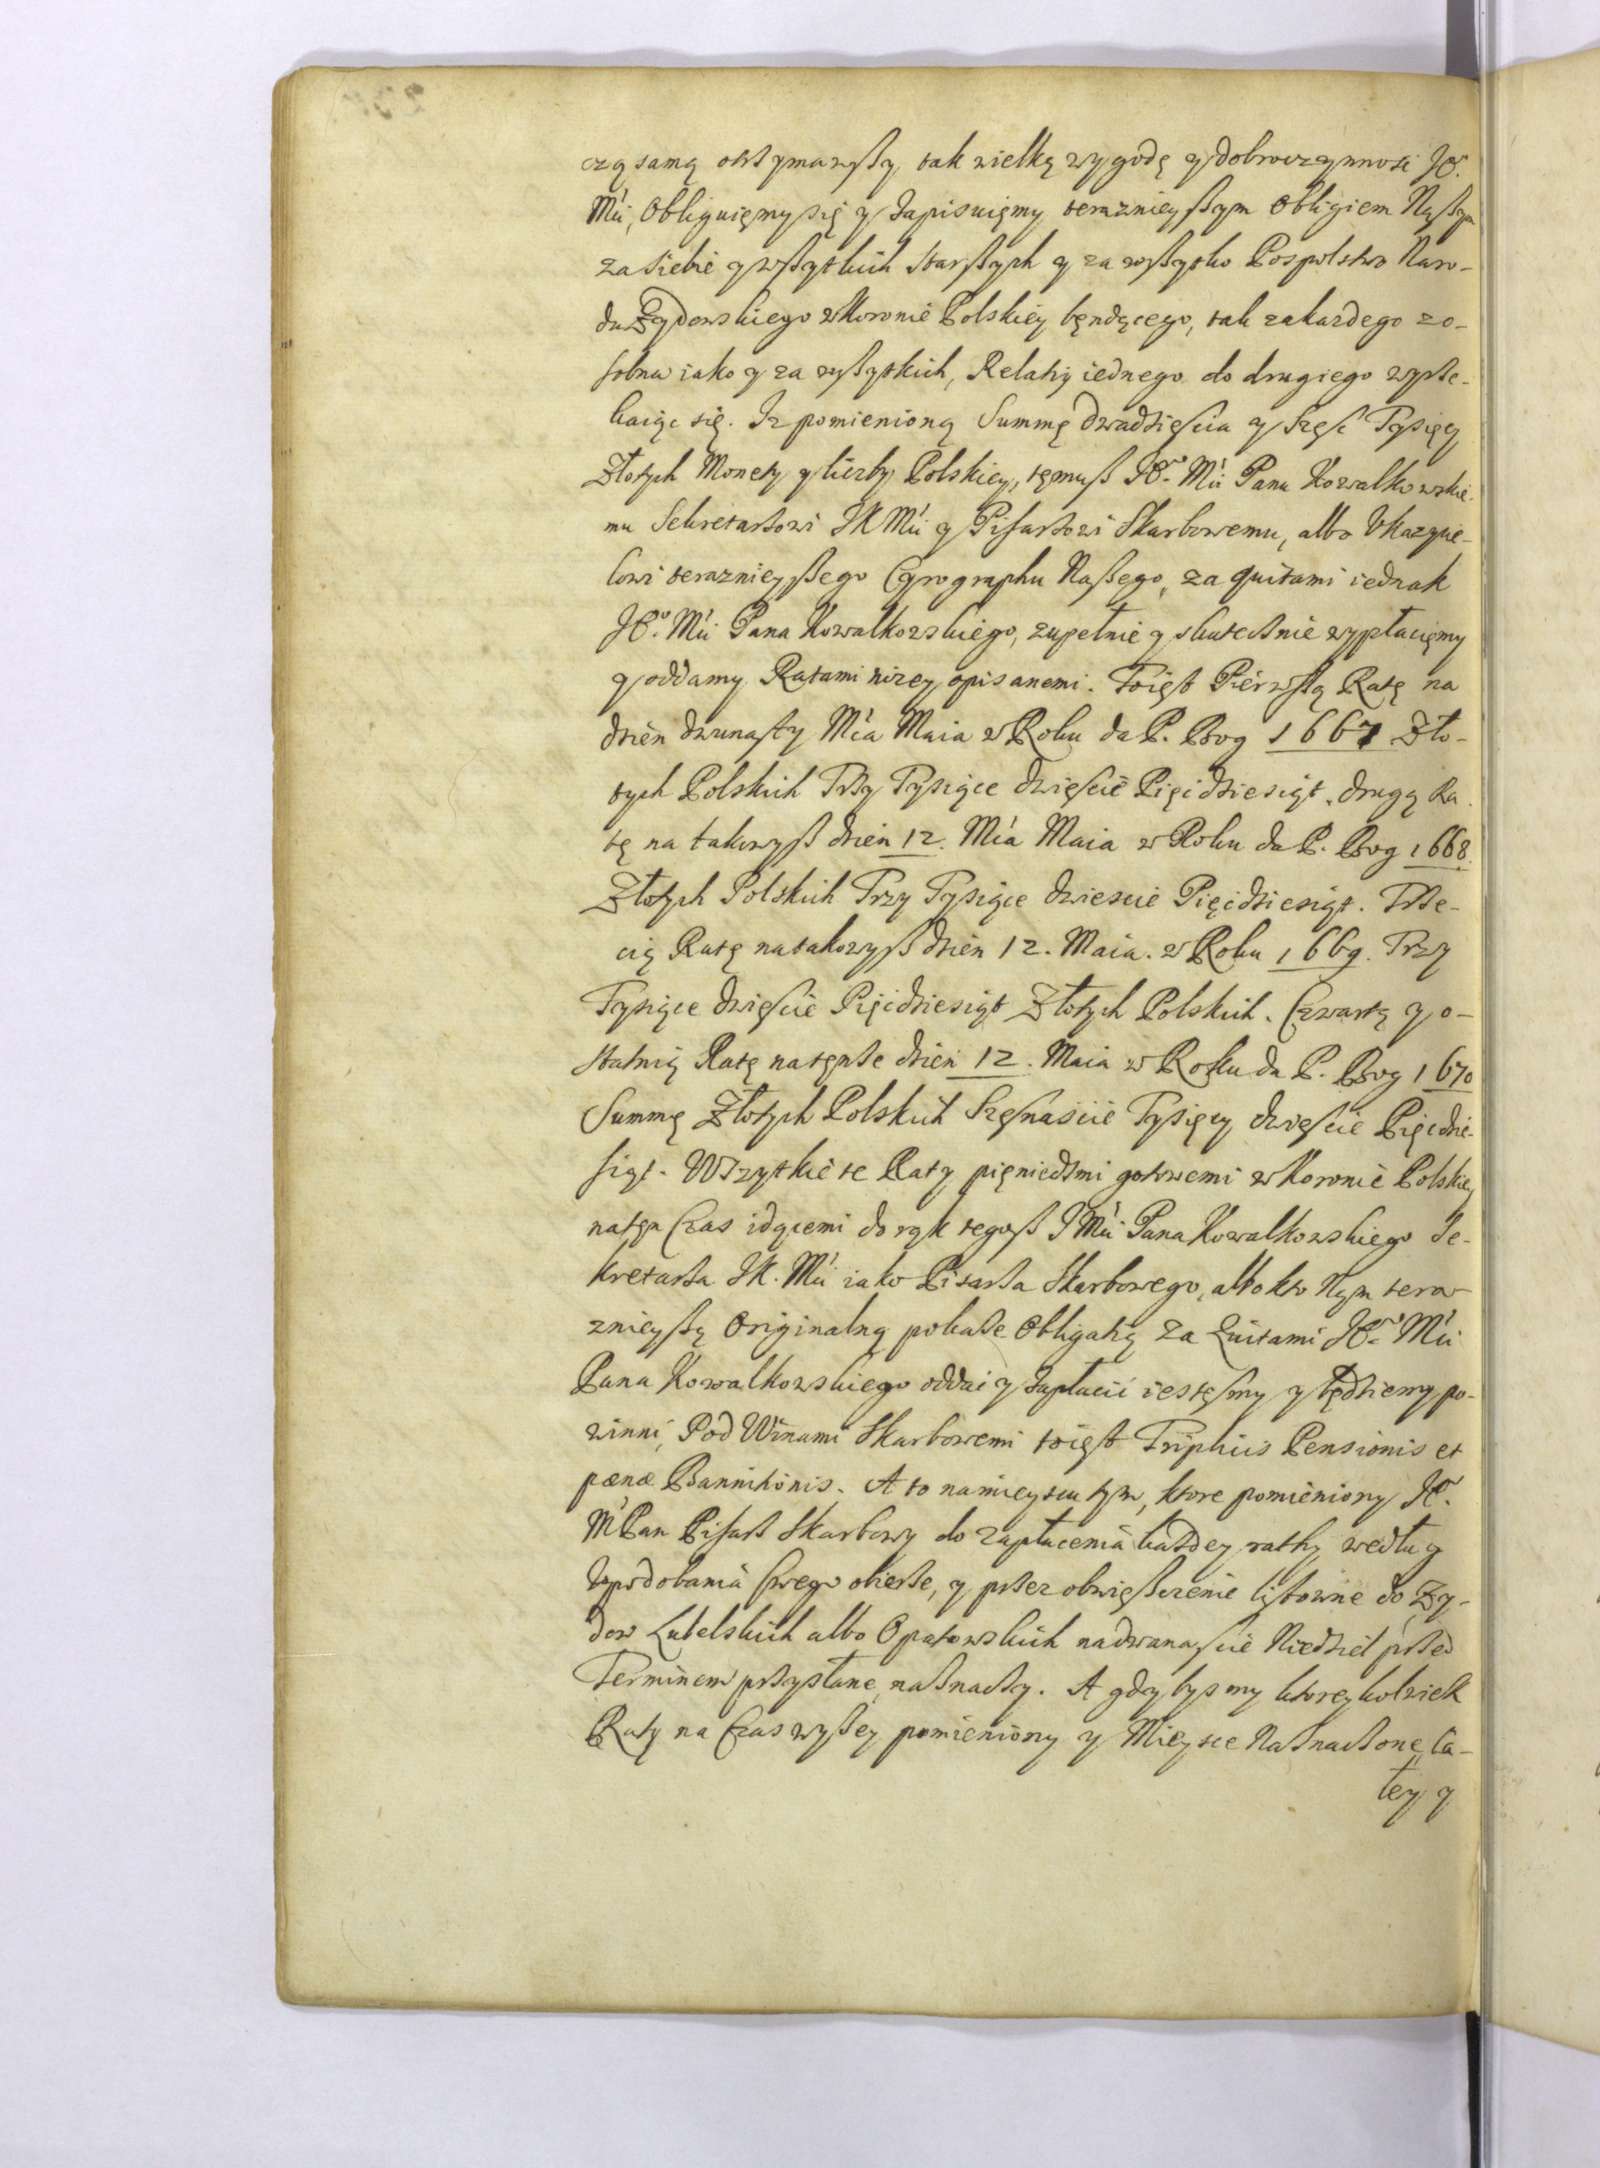 czą samą otrzymawszy, tak wielką wygodę y dobroczynnosc JEo.
Mći, Obliguięmy się y Zapisuięmy teraznieyßym Obligiem Naßym
za siebie y wßytkich Starßych y za wßytko Pospolstwo Naro-
du Zydowskiego w Koronie Polskiey będącego, tak za kazdego zo-
sobna iako y za wßytkich, Relatiy iednego do drugiego wyrze-
kaiąc się. Iz pomienioną Summę dwadziescia y Szesc Tysięcy
Złotych Monety y liczby Polskiey, tęmuß JEo. Mći Panu Kowalkowskie-
mu Sekretarzowi JK Mći y Pisarzowi Skarbowemu, albo Vkazycie-
lowi terazniey ßego Cyrographu Naßego, za quitami iednak
JEo. Mći Pana Kowalkowskiego, zupełnie y skutecznie wypłacięmy
y oddamy Ratami nizey opisanemi. Toięst Pierwßą Ratę na
dzien dwunasty Mća Maia w Roku da P. Bog 1667 Zło-
tych Polskich Trzy Tysiące dwiescie Pięcdziesiąt, drugą Ra-
tę na takowyß dzien 12. Mća Maia w Roku da P. Bog 1668.
Złotych Polskich Trzy Tysiące dwiescie Pięcdziesiąt. Trze-
cią Ratę na takowyß dzien 12. Maia. w Roku 1669. Trzy
Tysiące dwiescie Pięcdziesiąt Złotych Polskich. Czwartą y o-
statnią Ratę na tęnze dzien 12. Maia w Roku da P. Bog 1670
Summę Złotych Polskich Szesnascie Tysięcy dwiescie Pięcdzie-
siąt. Wszytkie te Raty pięniedzmi gotowemi w Koronie Polskiey
na tęn Czas idącemi do rąk tegoß JMći Pana Kowalkowskiego Se-
kretarza JK. Mći iako Pisarza Skarbowego, albo kto Nąm tera-
znieyßą Originalną pokaze Obligatią za Quitami JEo. Mći
Pana Kowalkowskiego oddac y Zapłacic iestęsmy y będziemy po-
winni, Pod Winami Skarbowemi toięst Triplicis Pensionis et
pænæ Bannitionis. A to na mieyscu tym, ktore pomieniony JE.
M Pan Pisarz Skarbowy do zapłacenia kazdey rathy według
Vpodobania swego obierze, y przez obwięßczenie listowne do Zy-
dow Lubelskich albo Opatowskich na dwanascie Niedziel przed
Terminem przysłane, naznaczy. A gdy bysmy ktorey kolwiek
Raty na Czas wyßey pomieniony y Mieysce Naznaczone ca-
łey y